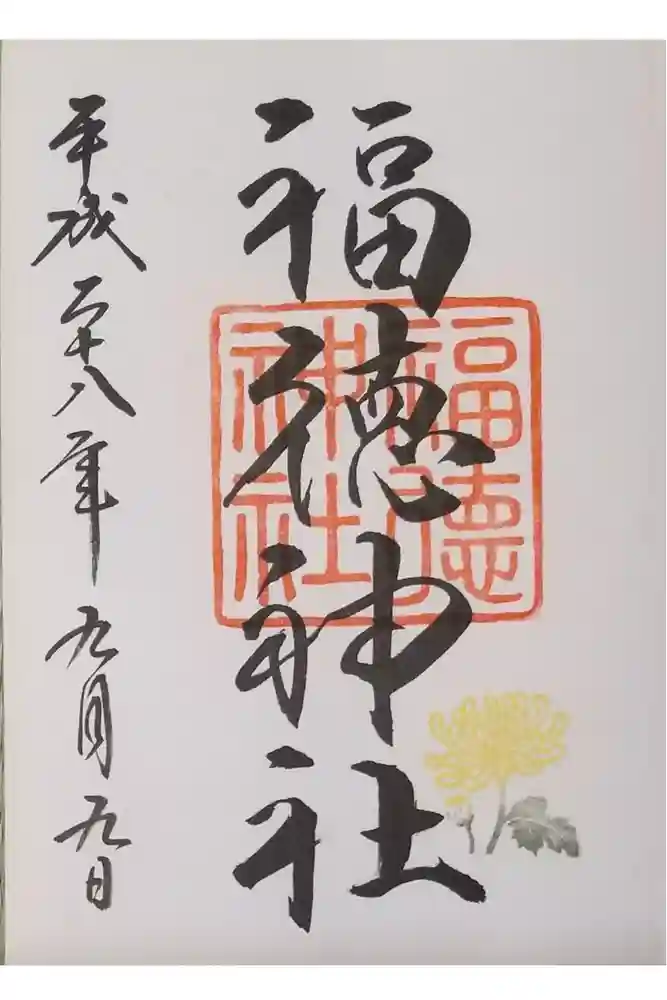 福徳神社
福徳
神社
平成二十八年九月九日